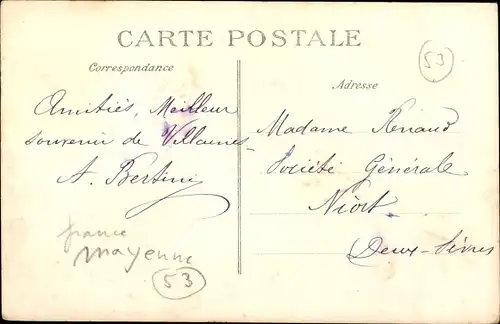 CARTE POSTALE
53
Correspondance
Adresse
Amitiés, Meilleur
souvenir de Villaines
A. Bertini
Madame Renaud
Société Générale
Niort
Deux-Sèvres
france
mayenne
53